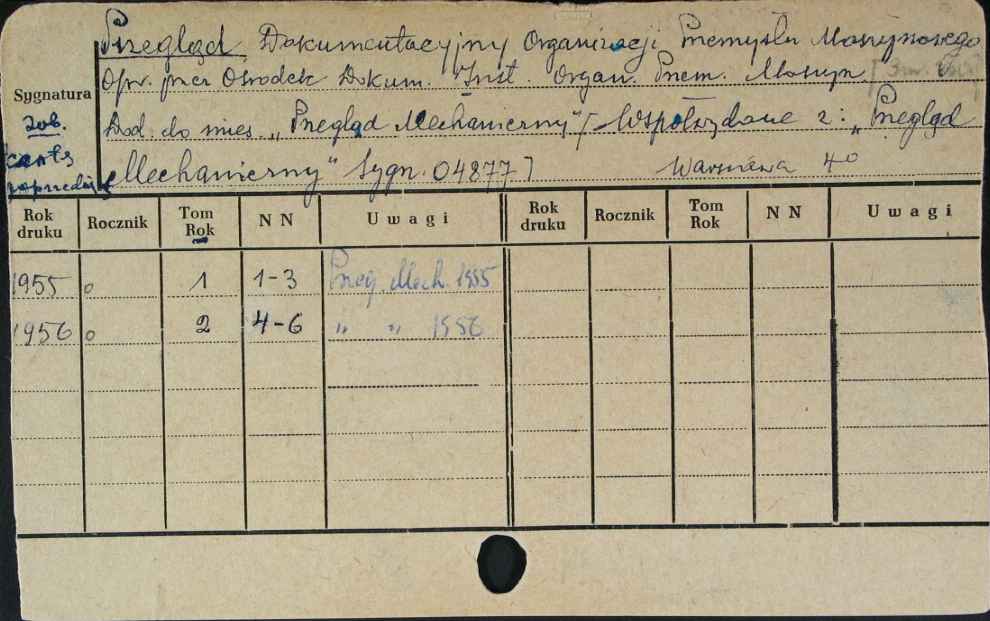 Przegląd Dokumentacyjny Organizacji Przemysłu Maszynowego
Opr. przez Ośrodek Dokum. Inst. Organ. Przem. Maszyn.
Sygnatura
zob.
Dod. do mies. „Przegląd Mechaniczny" [-Współwydane z: „Przegląd
karta
poprzednia
Mechaniczny" Sygn. 04877] Warszawa 4°
Rok druku Rocznik Tom Rok N N Uwagi Rok druku Rocznik Tom Rok N N Uwagi
1955 o 1 1-3 Przeg. Mech. 1955
1956 o 2 4-6 " " 1956